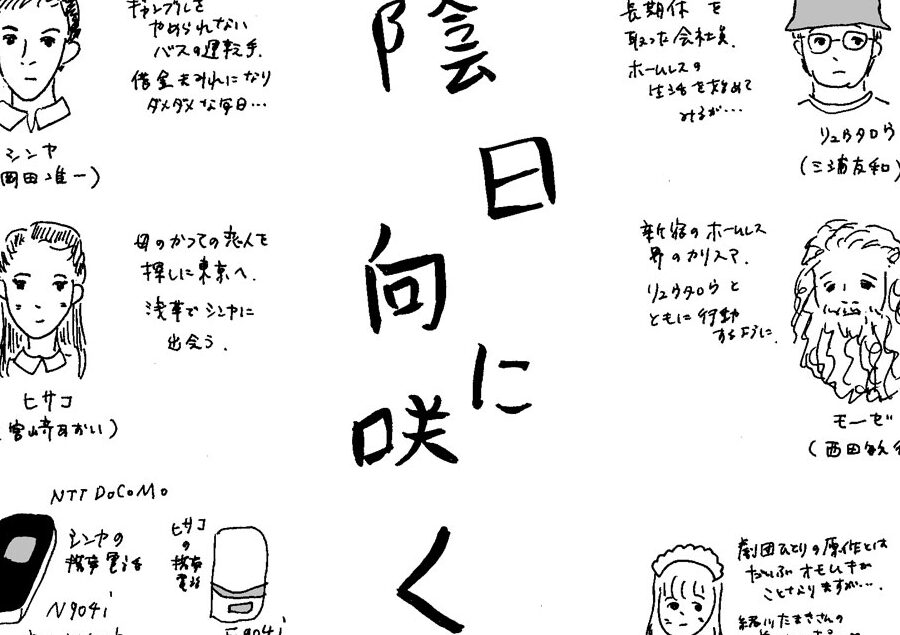 ギャンブルを
やめられない
バスの運転手.
借金まみれになり
ダメダメな毎日…
シンヤ
岡田准一)
母のかつての恋人を
探しに東京へ.
浅草でシンヤに
出会う.
ヒサコ
宮崎あおい)
NTT DoCoMo
シンヤの
携帯電話
N904i
ヒサコ
の
携帯
電話
陰
日
向
に
咲
く
長期休を
取った会社員.
ホームレスの
生活を始めて
みるが…
リュウタロウ
(三浦友和)
新宿のホームレス
界のカリスマ.
リュウタロウと
ともに行動
するように.
モーゼ
(西田敏
劇団ひとりの原作とは
だいぶオモムキが
ことなりますが…
緒川たまきさんの